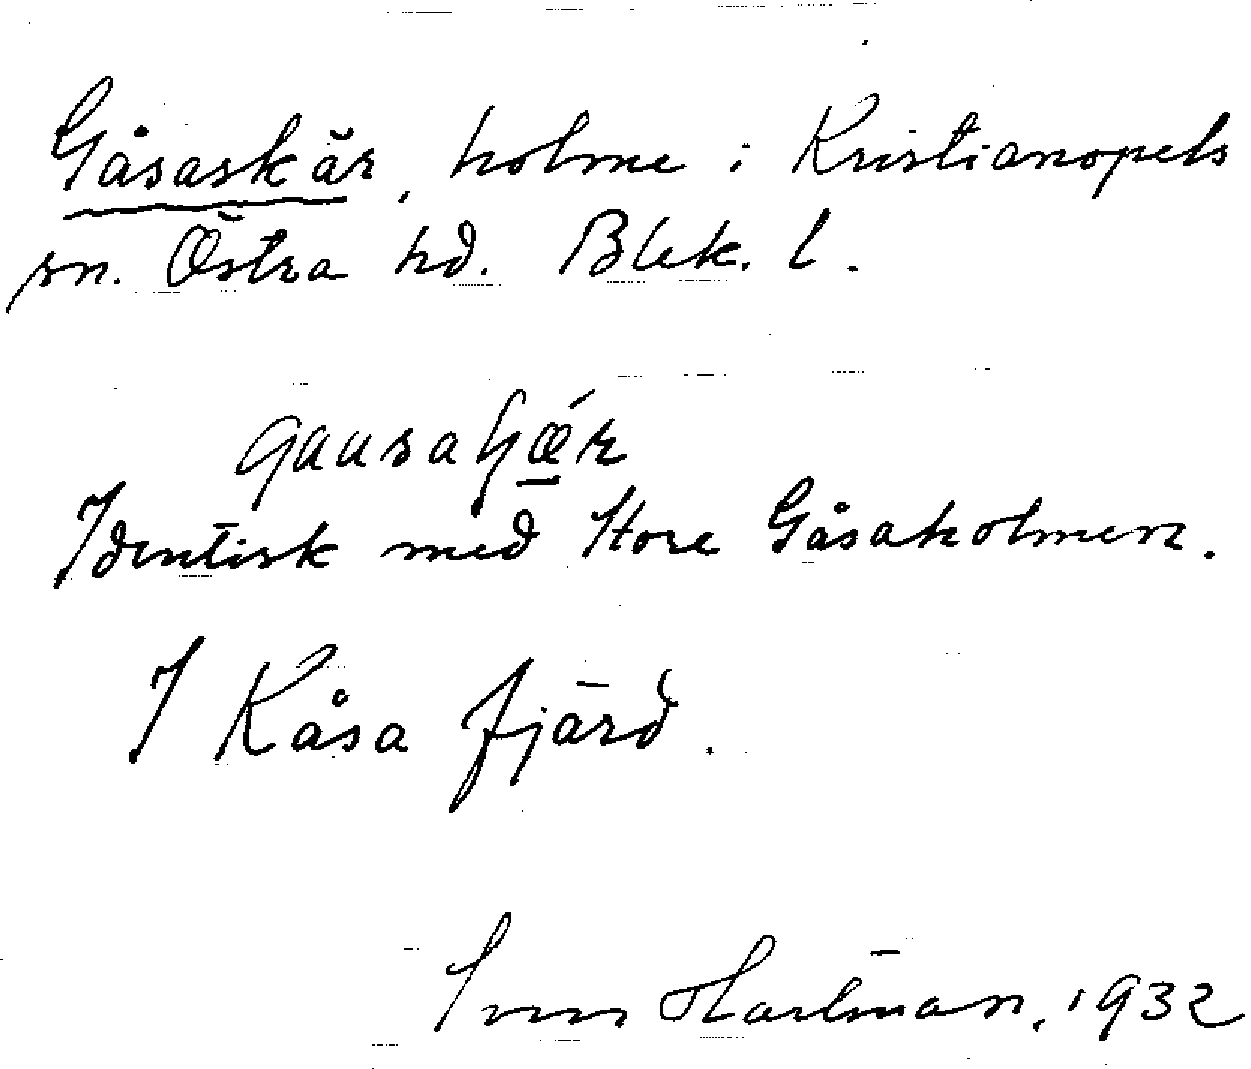 Gåsaskär, holme i Kristianopels
sn. Östra hd. Blek. l.
Identisk med Store Gåsaholmen.
I Kåsa fjärd.
Sven Hartman, 1932